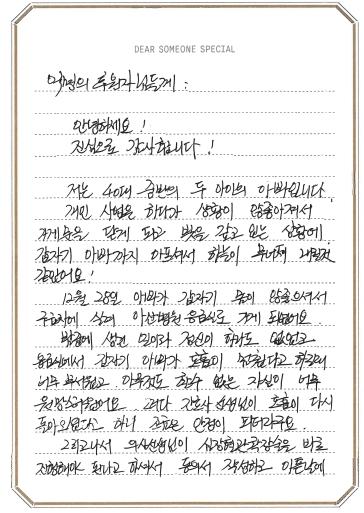 DEAR SOMEONE SPECIAL
익명의 후원자님들께 :
안녕하세요!
진심으로 감사합니다!
저는 40대 중반의 두 아이의 아빠입니다.
개인 사업을 하다가 상황이 안좋아져서
가게를 닫고 빚을 갚고 있는 상황에
갑자기 아빠까지 아프셔서 하늘이 무너져 내릴것
같았어요!
12월 28일 아빠가 갑자기 몸이 안좋으셔서
구급차에 실려 아산병원 응급실로 가게 되었어요.
밤에 생긴 일이라 정신이 하나도 없었고
응급실에서 갑자기 아빠가 호흡이 하길래
너무 무서웠고 아무것도 할수 없는 자신이 너무
원망스러웠어요. 그러다 간호사 선생님이 호흡이 다시
돌아오셨다고 하니 조금은 안정이 되더라구요.
그리고나서 의사선생님이 심장혈관확장술을 바로
진행해야 된다고 하셔서 동의서 작성하고 아픈날에